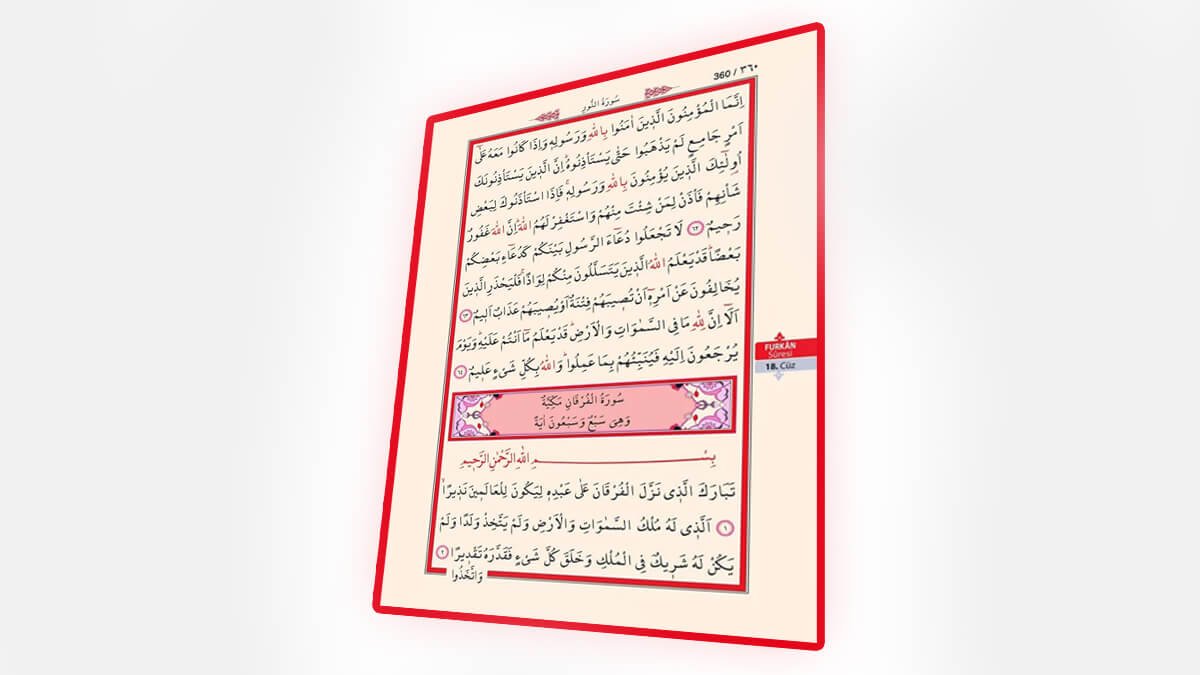 360 / ٣٦٠
سُورَةُ النُّورِ
اِنَّمَا الْمُؤْمِنُونَ الَّذ۪ينَ اٰمَنُوا بِاللّٰهِ وَرَسُولِه۪ وَاِذَا كَانُوا مَعَهُ عَلٰٓى
اَمْرٍ جَامِعٍ لَمْ يَذْهَبُوا حَتّٰى يَسْتَأْذِنُوهُۜ اِنَّ الَّذ۪ينَ يَسْتَأْذِنُونَكَ
اُو۬لٰٓئِكَ الَّذ۪ينَ يُؤْمِنُونَ بِاللّٰهِ وَرَسُولِه۪ۚ فَاِذَا اسْتَأْذَنُوكَ لِبَعْضِ
شَأْنِهِمْ فَأْذَنْ لِمَنْ شِئْتَ مِنْهُمْ وَاسْتَغْفِرْ لَهُمُ اللّٰهَۜ اِنَّ اللّٰهَ غَفُورٌ
رَح۪يمٌ ﴿٦٢﴾ لَا تَجْعَلُوا دُعَٓاءَ الرَّسُولِ بَيْنَكُمْ كَدُعَٓاءِ بَعْضِكُمْ
بَعْضًاۜ قَدْ يَعْلَمُ اللّٰهُ الَّذ۪ينَ يَتَسَلَّلُونَ مِنْكُمْ لِوَاذًاۚ فَلْيَحْذَرِ الَّذ۪ينَ
يُخَالِفُونَ عَنْ اَمْرِه۪ٓ اَنْ تُص۪يبَهُمْ فِتْنَةٌ اَوْ يُص۪يبَهُمْ عَذَابٌ اَل۪يمٌ ﴿٦٣﴾
اَلَٓا اِنَّ لِلّٰهِ مَا فِي السَّمٰوَاتِ وَالْاَرْضِۜ قَدْ يَعْلَمُ مَٓا اَنْتُمْ عَلَيْهِۜ وَيَوْمَ
يُرْجَعُونَ اِلَيْهِ فَيُنَبِّئُهُمْ بِمَا عَمِلُواۜ وَاللّٰهُ بِكُلِّ شَيْءٍ عَل۪يمٌ ﴿٦٤﴾
سُورَةُ الْفُرْقَانِ مَكِّيَّةٌ
وَهِيَ سَبْعٌ وَسَبْعُونَ اٰيَةً
بِسْمِ اللّٰهِ الرَّحْمٰنِ الرَّح۪يمِ
تَبَارَكَ الَّذ۪ي نَزَّلَ الْفُرْقَانَ عَلٰى عَبْدِه۪ لِيَكُونَ لِلْعَالَم۪ينَ نَذ۪يرًاۙ
﴿١﴾ اَلَّذ۪ي لَهُ مُلْكُ السَّمٰوَاتِ وَالْاَرْضِ وَلَمْ يَتَّخِذْ وَلَدًا وَلَمْ
يَكُنْ لَهُ شَر۪يكٌ فِي الْمُلْكِ وَخَلَقَ كُلَّ شَيْءٍ فَقَدَّرَهُ تَقْد۪يرًا ﴿٢﴾
وَاتَّخَذُوا
FURKÂN
Sûresi
18. Cüz